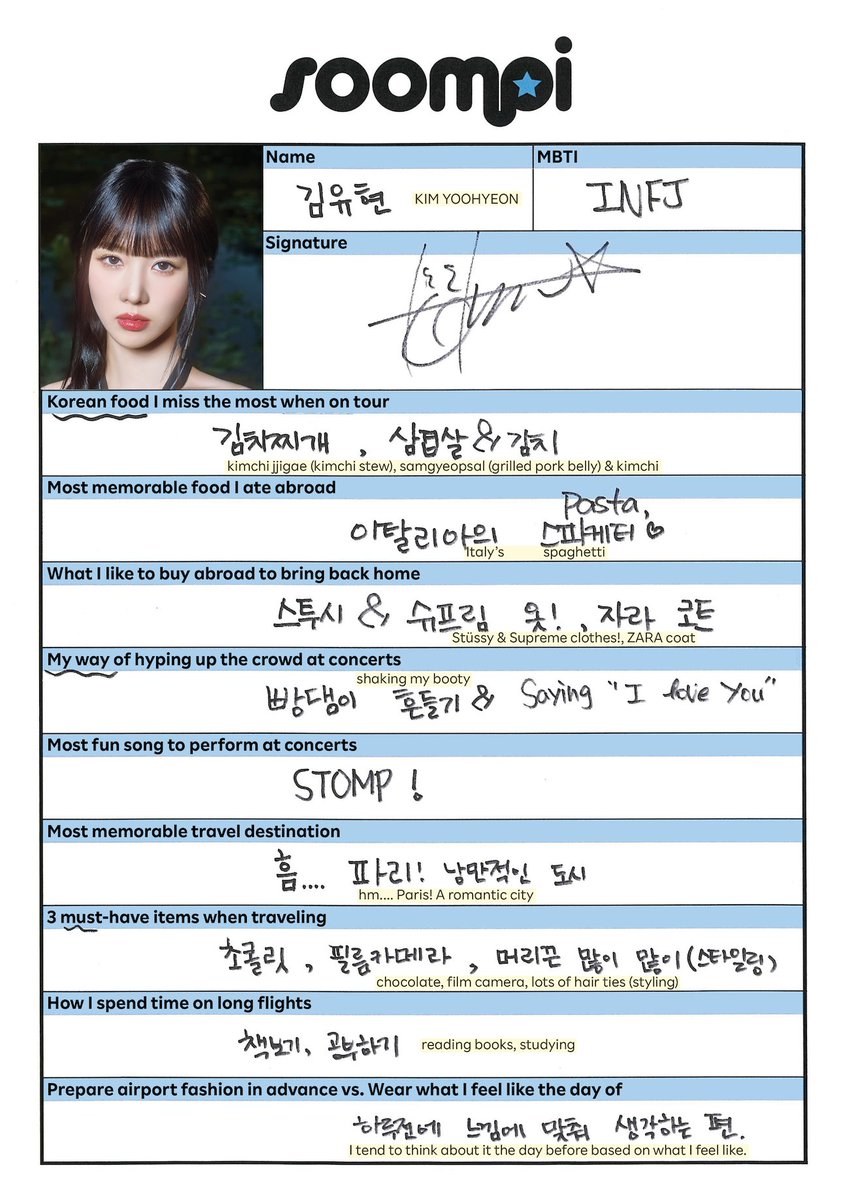 soompi
Name
MBTI
김유현 KIM YOOHYEON
INFJ
Signature
Korean food I miss the most when on tour
김치찌개 , 삼겹살 & 김치
kimchi jjigae (kimchi stew), samgyeopsal (grilled pork belly) & kimchi
Most memorable food I ate abroad
Pasta,
이탈리아의 스파게티 ♡
Italy's spaghetti
What I like to buy abroad to bring back home
스투시 & 슈프림 옷! , 자라 코트
Stüssy & Supreme clothes!, ZARA coat
My way of hyping up the crowd at concerts
shaking my booty
빵댕이 흔들기 & Saying "I love You"
Most fun song to perform at concerts
STOMP !
Most memorable travel destination
흠.... 파리! 낭만적인 도시
hm.... Paris! A romantic city
3 must-have items when traveling
초콜릿 , 필름카메라 , 머리끈 많이 많이 (스타일링)
chocolate, film camera, lots of hair ties (styling)
How I spend time on long flights
책보기, 공부하기 reading books, studying
Prepare airport fashion in advance vs. Wear what I feel like the day of
하루전에 느낌에 맞춰 생각하는 편.
I tend to think about it the day before based on what I feel like.